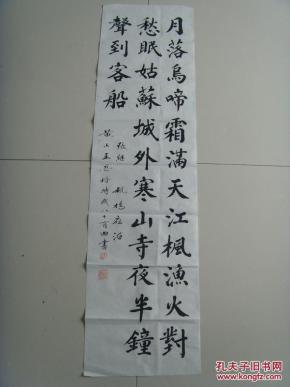 月落烏啼霜滿天江楓漁火對
愁眠姑蘇城外寒山寺夜半鐘
聲到客船
張繼 楓橋夜泊
孔夫子旧书网